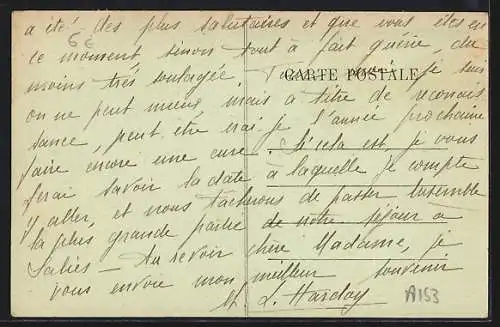 a été des plus salutaires et que vous êtes en
6 €
ce moment, sinon tout à fait guérie, du
moins très soulagée. je suis
CARTE POSTALE
on ne peut mieux mais à titre de reconnais
sance, peut être irai je l'année prochaine
faire encore une cure. Si cela est, je vous
ferai savoir la date à laquelle je compte
y aller, et nous tacherons de passer ensemble
la plus grande partie de notre séjour a
Salies — Au revoir chère Madame, je
vous envoie mon meilleur souvenir
L. Harday
A153